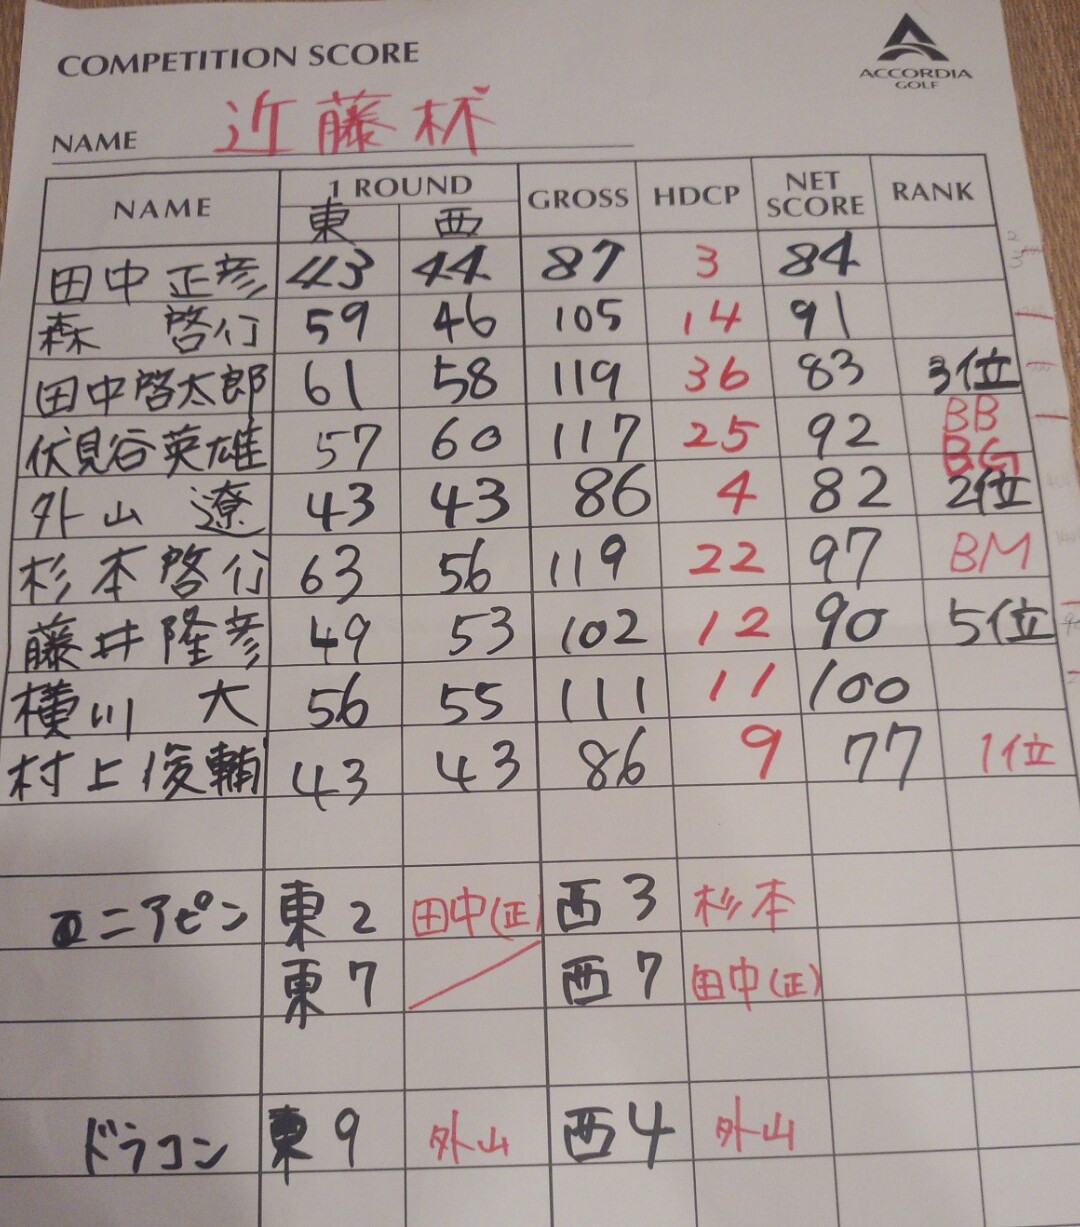 COMPETITION SCORE
ACCORDIA
GOLF
NAME 近藤杯
NAME 1 ROUND GROSS HDCP NET SCORE RANK
東 西
田中 正彦 43 44 87 3 84
森 啓行 59 46 105 14 91
田中啓太郎 61 58 119 36 83 3位
伏見谷英雄 57 60 117 25 92 BB BG
外山 遼 43 43 86 4 82 2位
杉本啓行 63 56 119 22 97 BM
藤井隆彦 49 53 102 12 90 5位
横川 大 56 55 111 11 100
村上俊輔 43 43 86 9 77 1位
ニアピン 東2 田中(正) 西3 杉本
東7 西7 田中(正)
ドラコン 東9 外山 西4 外山